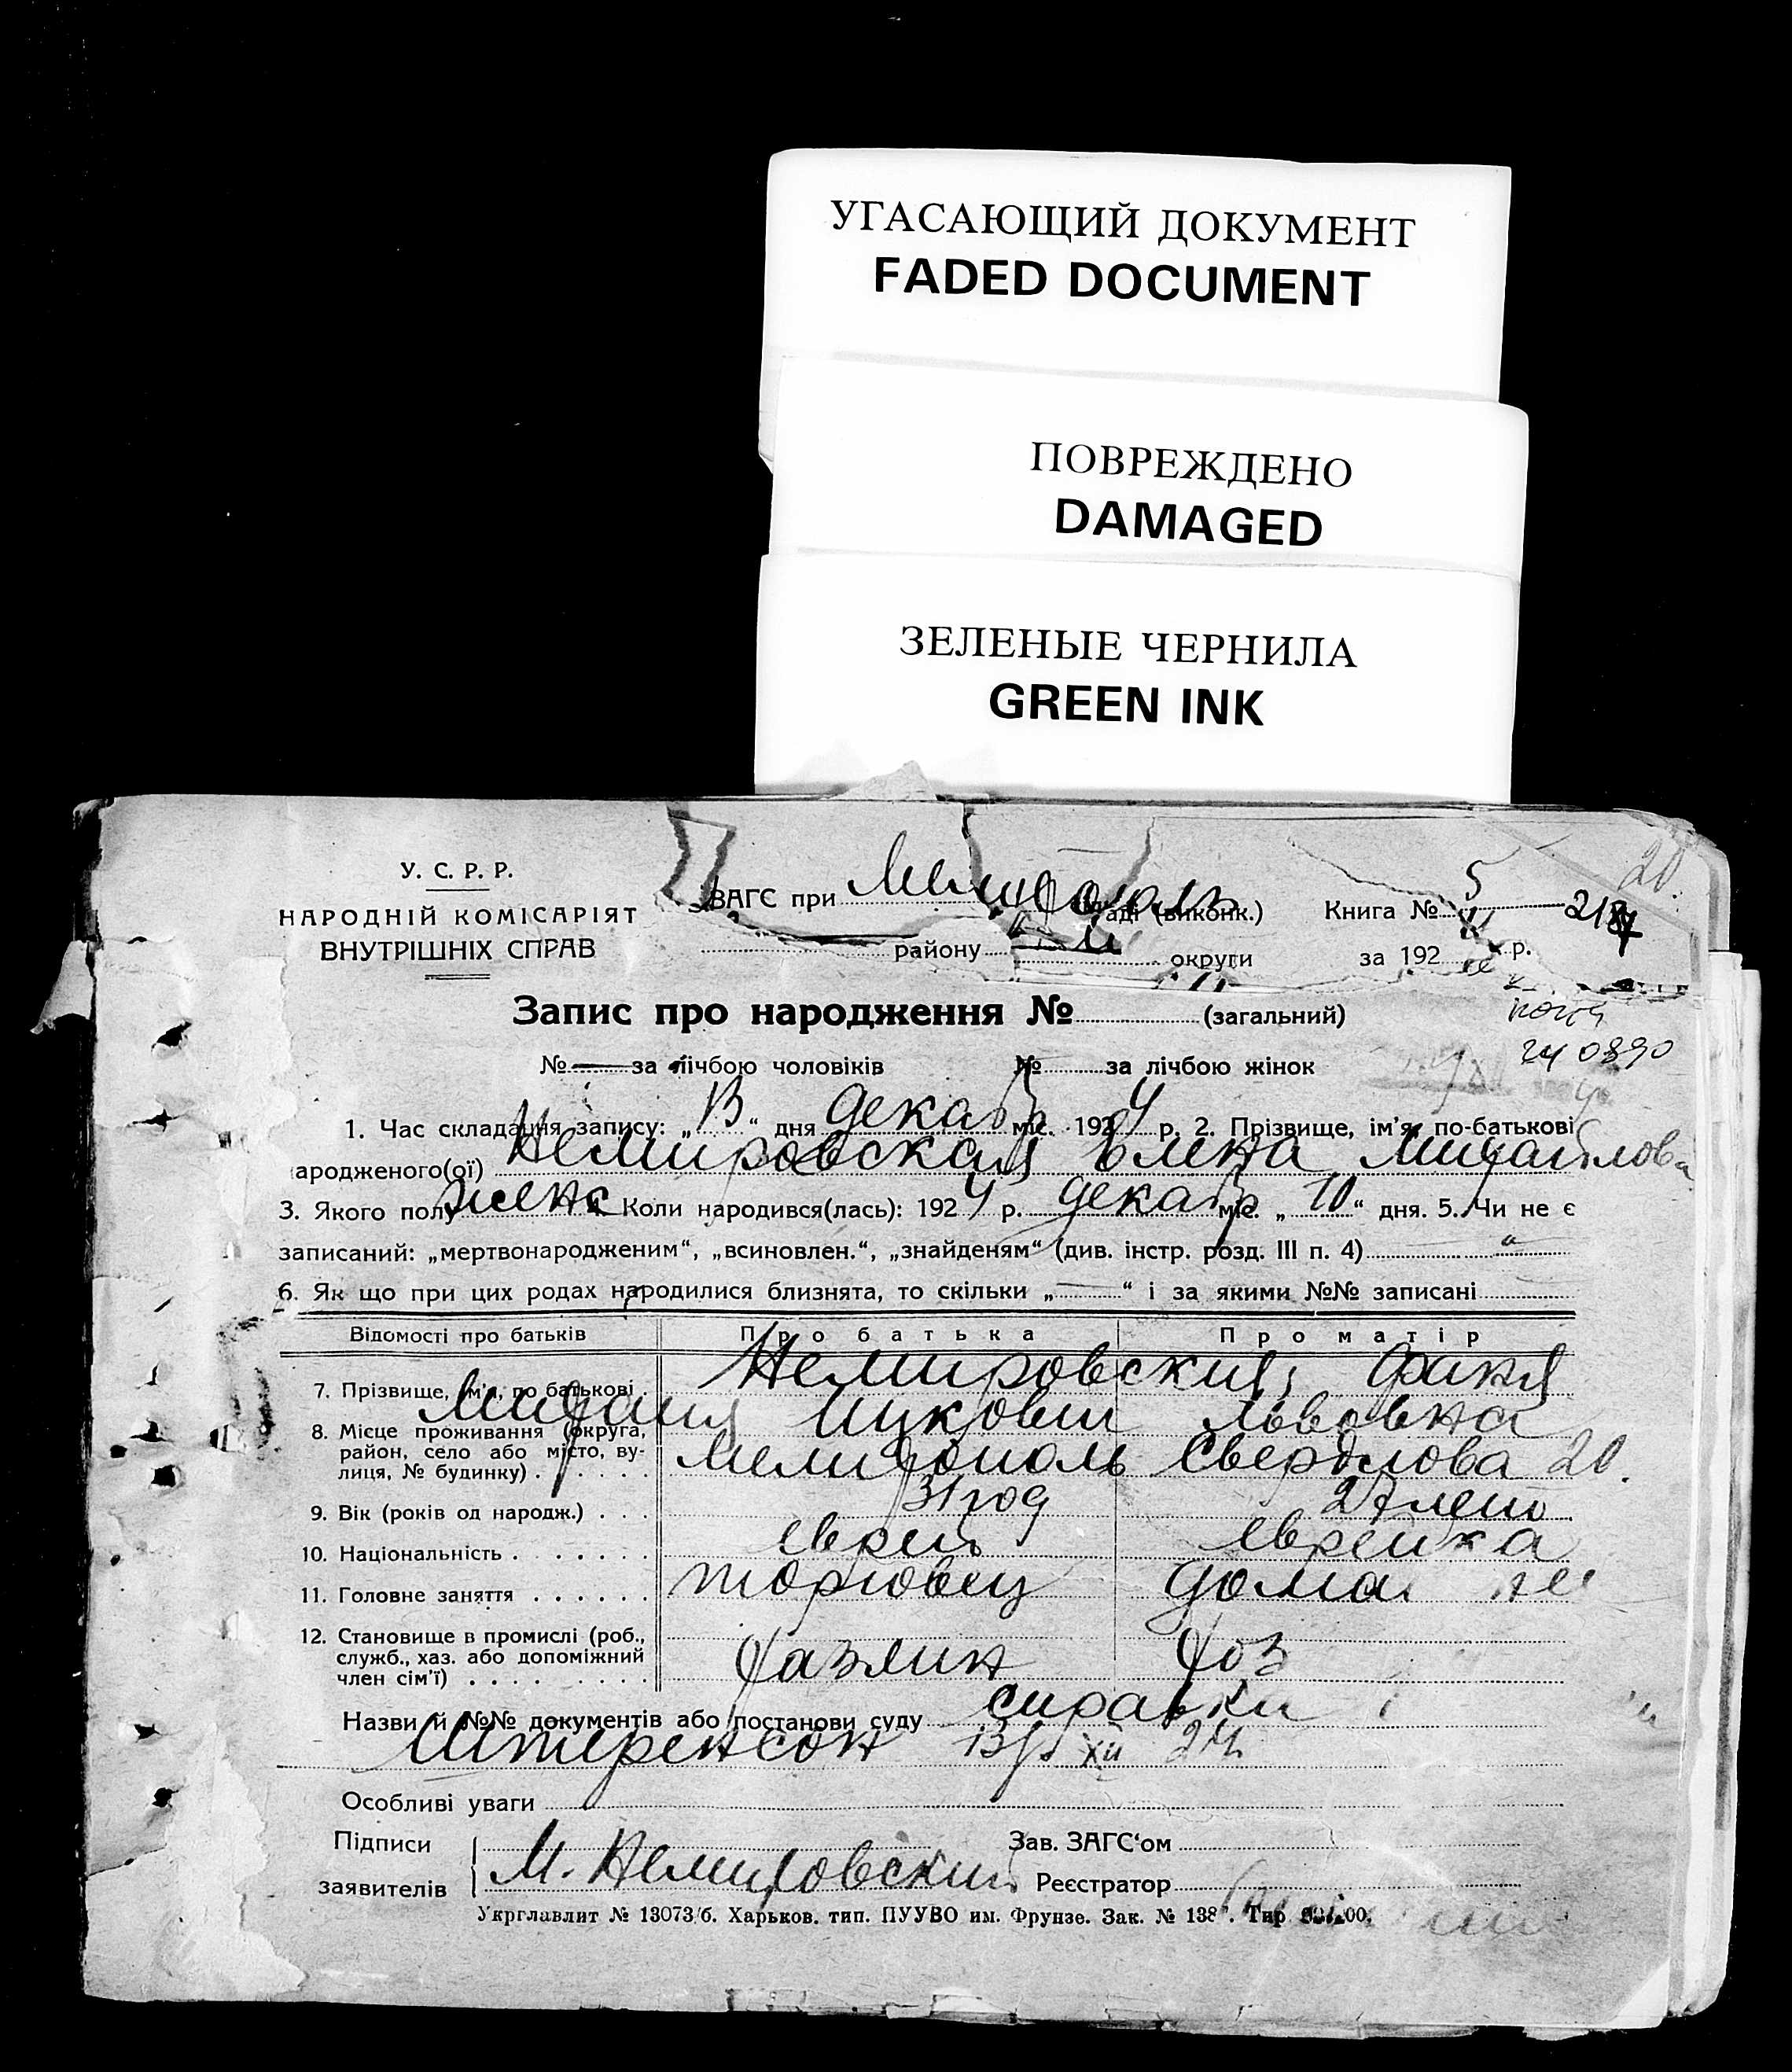 УГАСАЮЩИЙ ДОКУМЕНТ
FADED DOCUMENT
ПОВРЕЖДЕНО
DAMAGED
ЗЕЛЕНЫЕ ЧЕРНИЛА
GREEN INK
20.
У. С. Р. Р.
НАРОДНІЙ КОМІСАРІЯТ
ВНУТРІШНІХ СПРАВ
ЗАГС при Мелитополь (виконк.) Книга № 5
району округи за 192 р.
Запис про народження № (загальний)
№ — за лічбою чоловіків № за лічбою жінок
240890
1. Час складання запису: „ 13 “ дня декаб міс. 1924 р. 2. Прізвище, ім'я, по-батькові
ародженого(ої) Немировская Елена Михайлова
3. Якого полу женс 4. Коли народився(лась): 1924 р. декабр міс. „ 10 “ дня. 5. Чи не є
записаний: „мертвонародженим“, „всиновлен.“, „знайденям“ (див. інстр. розд. III п. 4)
6. Як що при цих родах народилися близнята, то скільки „ — “ і за якими №№ записані
Відомості про батьків Про батька Про матір
7. Прізвище, ім'я, по батькові . Немировский Фаня
Михаил Ицкович Львовна
8. Місце проживання (округа,
район, село або місто, ву-
лиця, № будинку) . . . . . Мелитополь Свердлова 20.
9. Вік (років од народж.) . . . 31 год 27 лет
10. Національність . . . . . . . еврей еврейка
11. Головне заняття . . . . . . торговец домаш
12. Становище в промислі (роб.,
служб., хаз. або допоміжний
член сім'ї) . . . . . . . . .
Назви й №№ документів або постанови суду справки
Штеренсон 13/XII 24
Особливі уваги
Підписи Зав. ЗАГС'ом
заявителів М. Немировский Реєстратор
Укрглавлит № 13073/б. Харьков. тип. ПУУВО им. Фрунзе. Зак. № 138 . Тир 00.